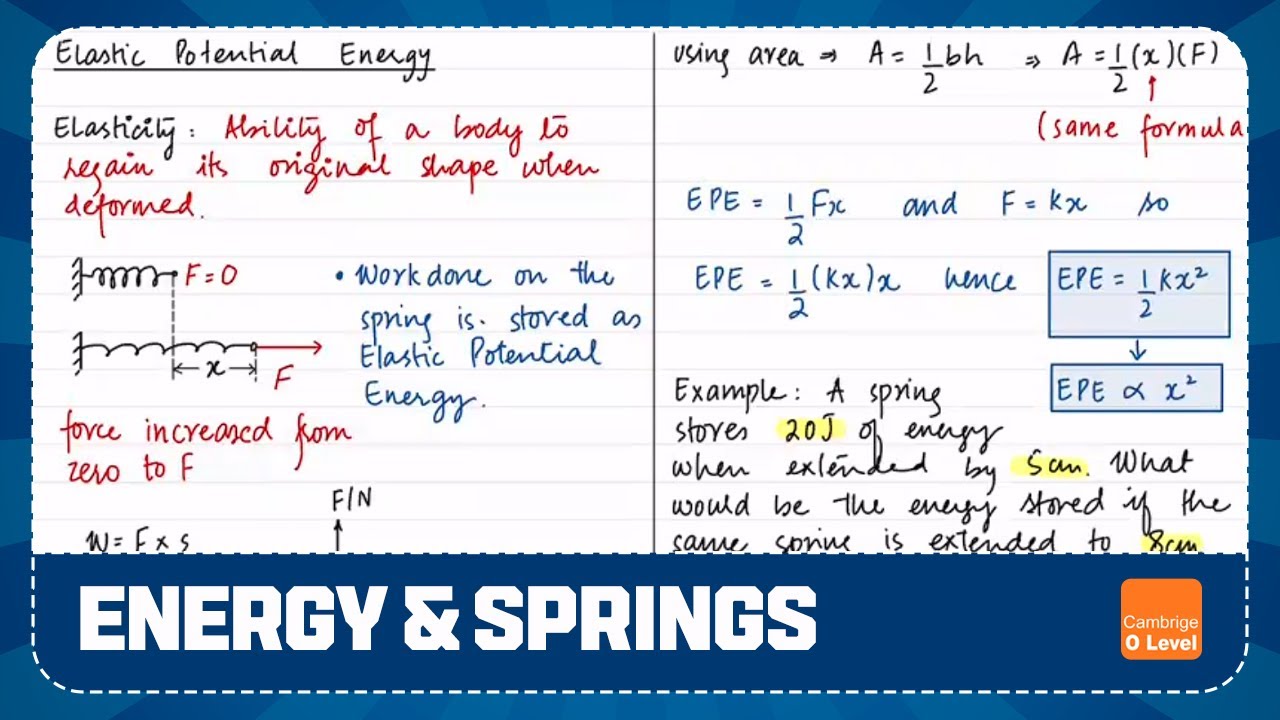 Elastic Potential Energy
Elasticity: Ability of a body to
regain its original shape when
deformed.
F=0
x
F
• Workdone on the
spring is. stored as
Elastic Potential
Energy.
force increased from
zero to F
F/N
W= F × s
using area ⇒ A = 1/2 bh ⇒ A = 1/2 (x)(F)
↑
(same formula
EPE = 1/2 Fx and F = kx so
EPE = 1/2 (kx)x hence EPE = 1/2 kx²
↓
EPE ∝ x²
Example: A spring
stores 20J of energy
when extended by 5cm. What
would be the energy stored if the
same spring is extended to 8cm
ENERGY & SPRINGS
Cambrige
O Level